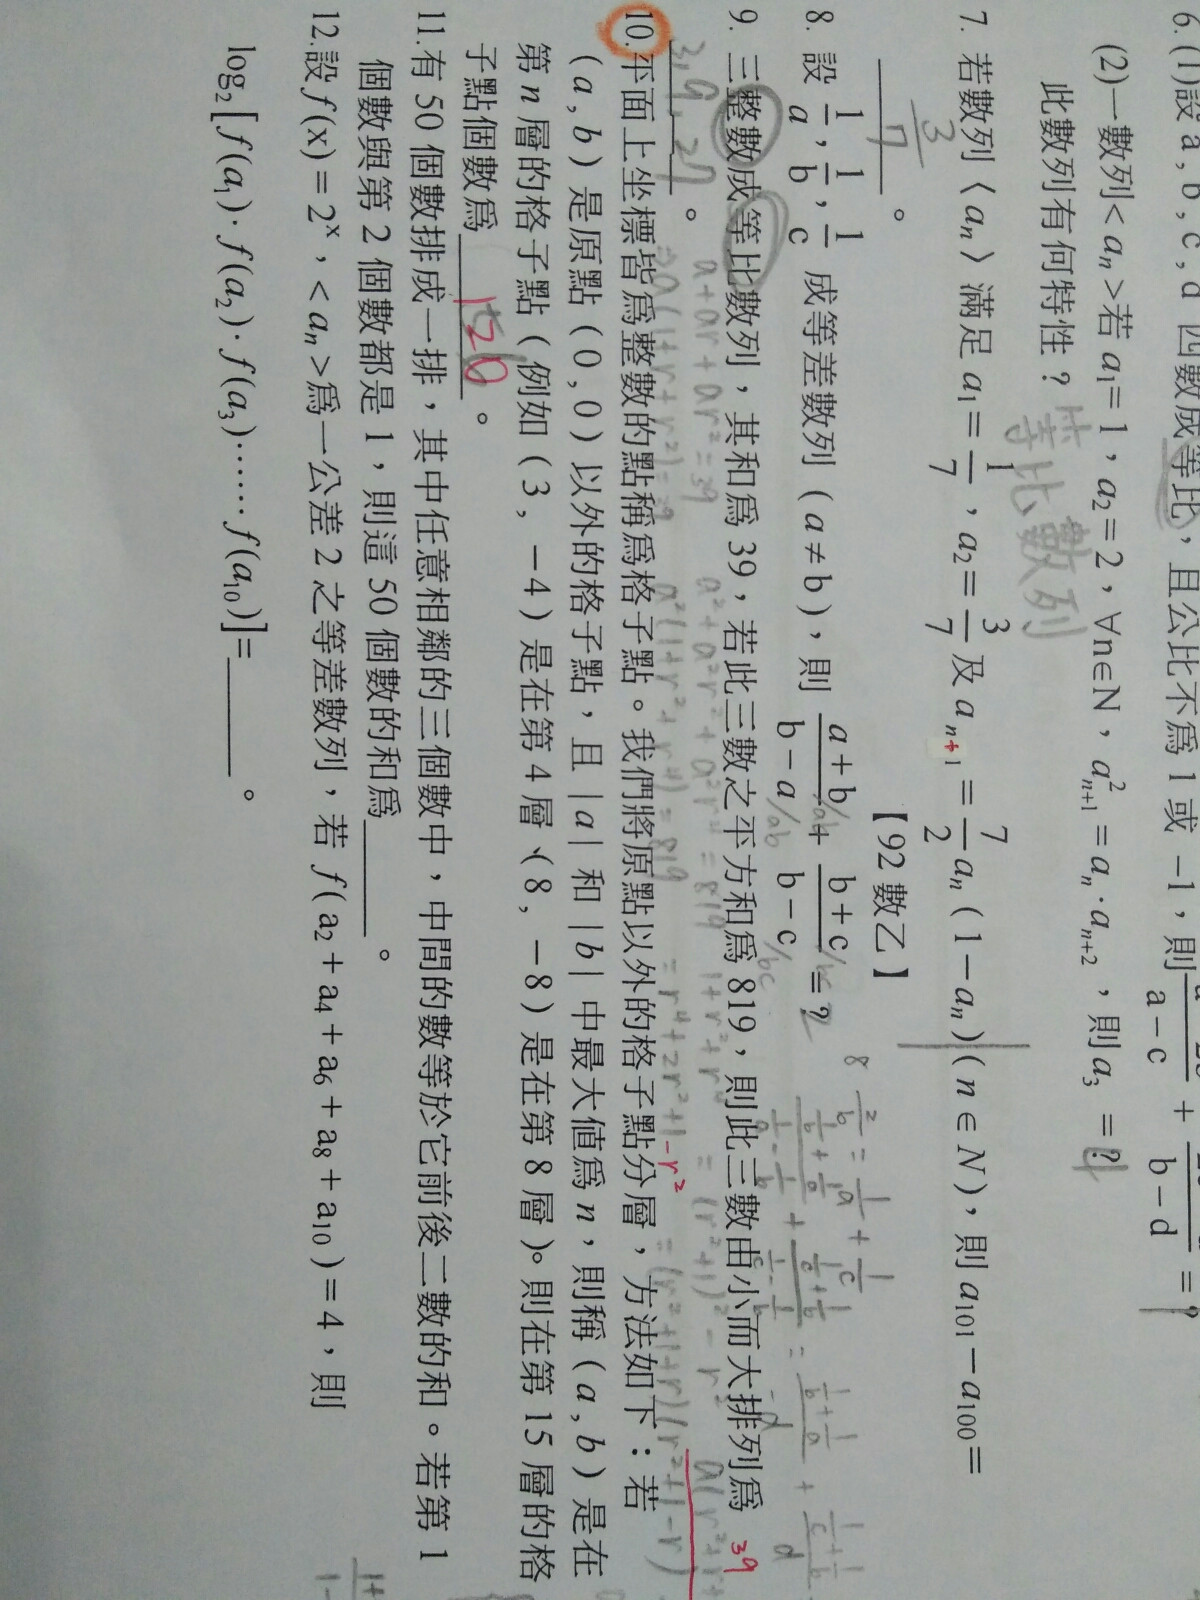 6. (1)設 a , b , c , d 四數成等比，且公比不為 1 或 -1，則
a－c + b－d =?
(2)一數列< aₙ >若 a₁=1，a₂=2，∀n∈N，a²ₙ₊₁=aₙ·aₙ₊₂，則a₃ =? 4
此數列有何特性？ 等比數列
7. 若數列〈aₙ〉滿足 a₁=1/7，a₂=3/7 及 aₙ₊₁=7/2 aₙ(1－aₙ)(n∈N)，則 a₁₀₁－a₁₀₀=
3/7 。 【92 數乙】
8. 設 1/a , 1/b , 1/c 成等差數列(a≠b)，則 a+b/b－a + b+c/b－c =? 2
8 2/b = 1/a + 1/c
9. 三整數成等比數列，其和為 39，若此三數之平方和為 819，則此三數由小而大排列為
3, 9, 27 。
a+ar+ar²=39
a(1+r+r²)=39
a²+a²r²+a²r⁴=819
a²(1+r²+r⁴)=819
1+r²+r⁴
=r⁴+2r²+1-r²
=(r²+1)²-r²
=(r²+1+r)(r²+1-r)
39
10. 平面上坐標皆為整數的點稱為格子點。我們將原點以外的格子點分層，方法如下：若
(a , b)是原點(0 , 0)以外的格子點，且|a|和|b|中最大值為 n，則稱(a , b)是在
第 n 層的格子點(例如(3，－4)是在第 4 層；(8，－8)是在第 8 層)。則在第 15 層的格
子點個數為 120 。
11. 有 50 個數排成一排，其中任意相鄰的三個數中，中間的數等於它前後二數的和。若第 1
個數與第 2 個數都是 1，則這 50 個數的和為______。
12.設 f(x)=2ˣ，<aₙ>為一公差 2 之等差數列，若 f(a₂+a₄+a₆+a₈+a₁₀)=4，則
log₂[f(a₁)·f(a₂)·f(a₃)……f(a₁₀)]=______。